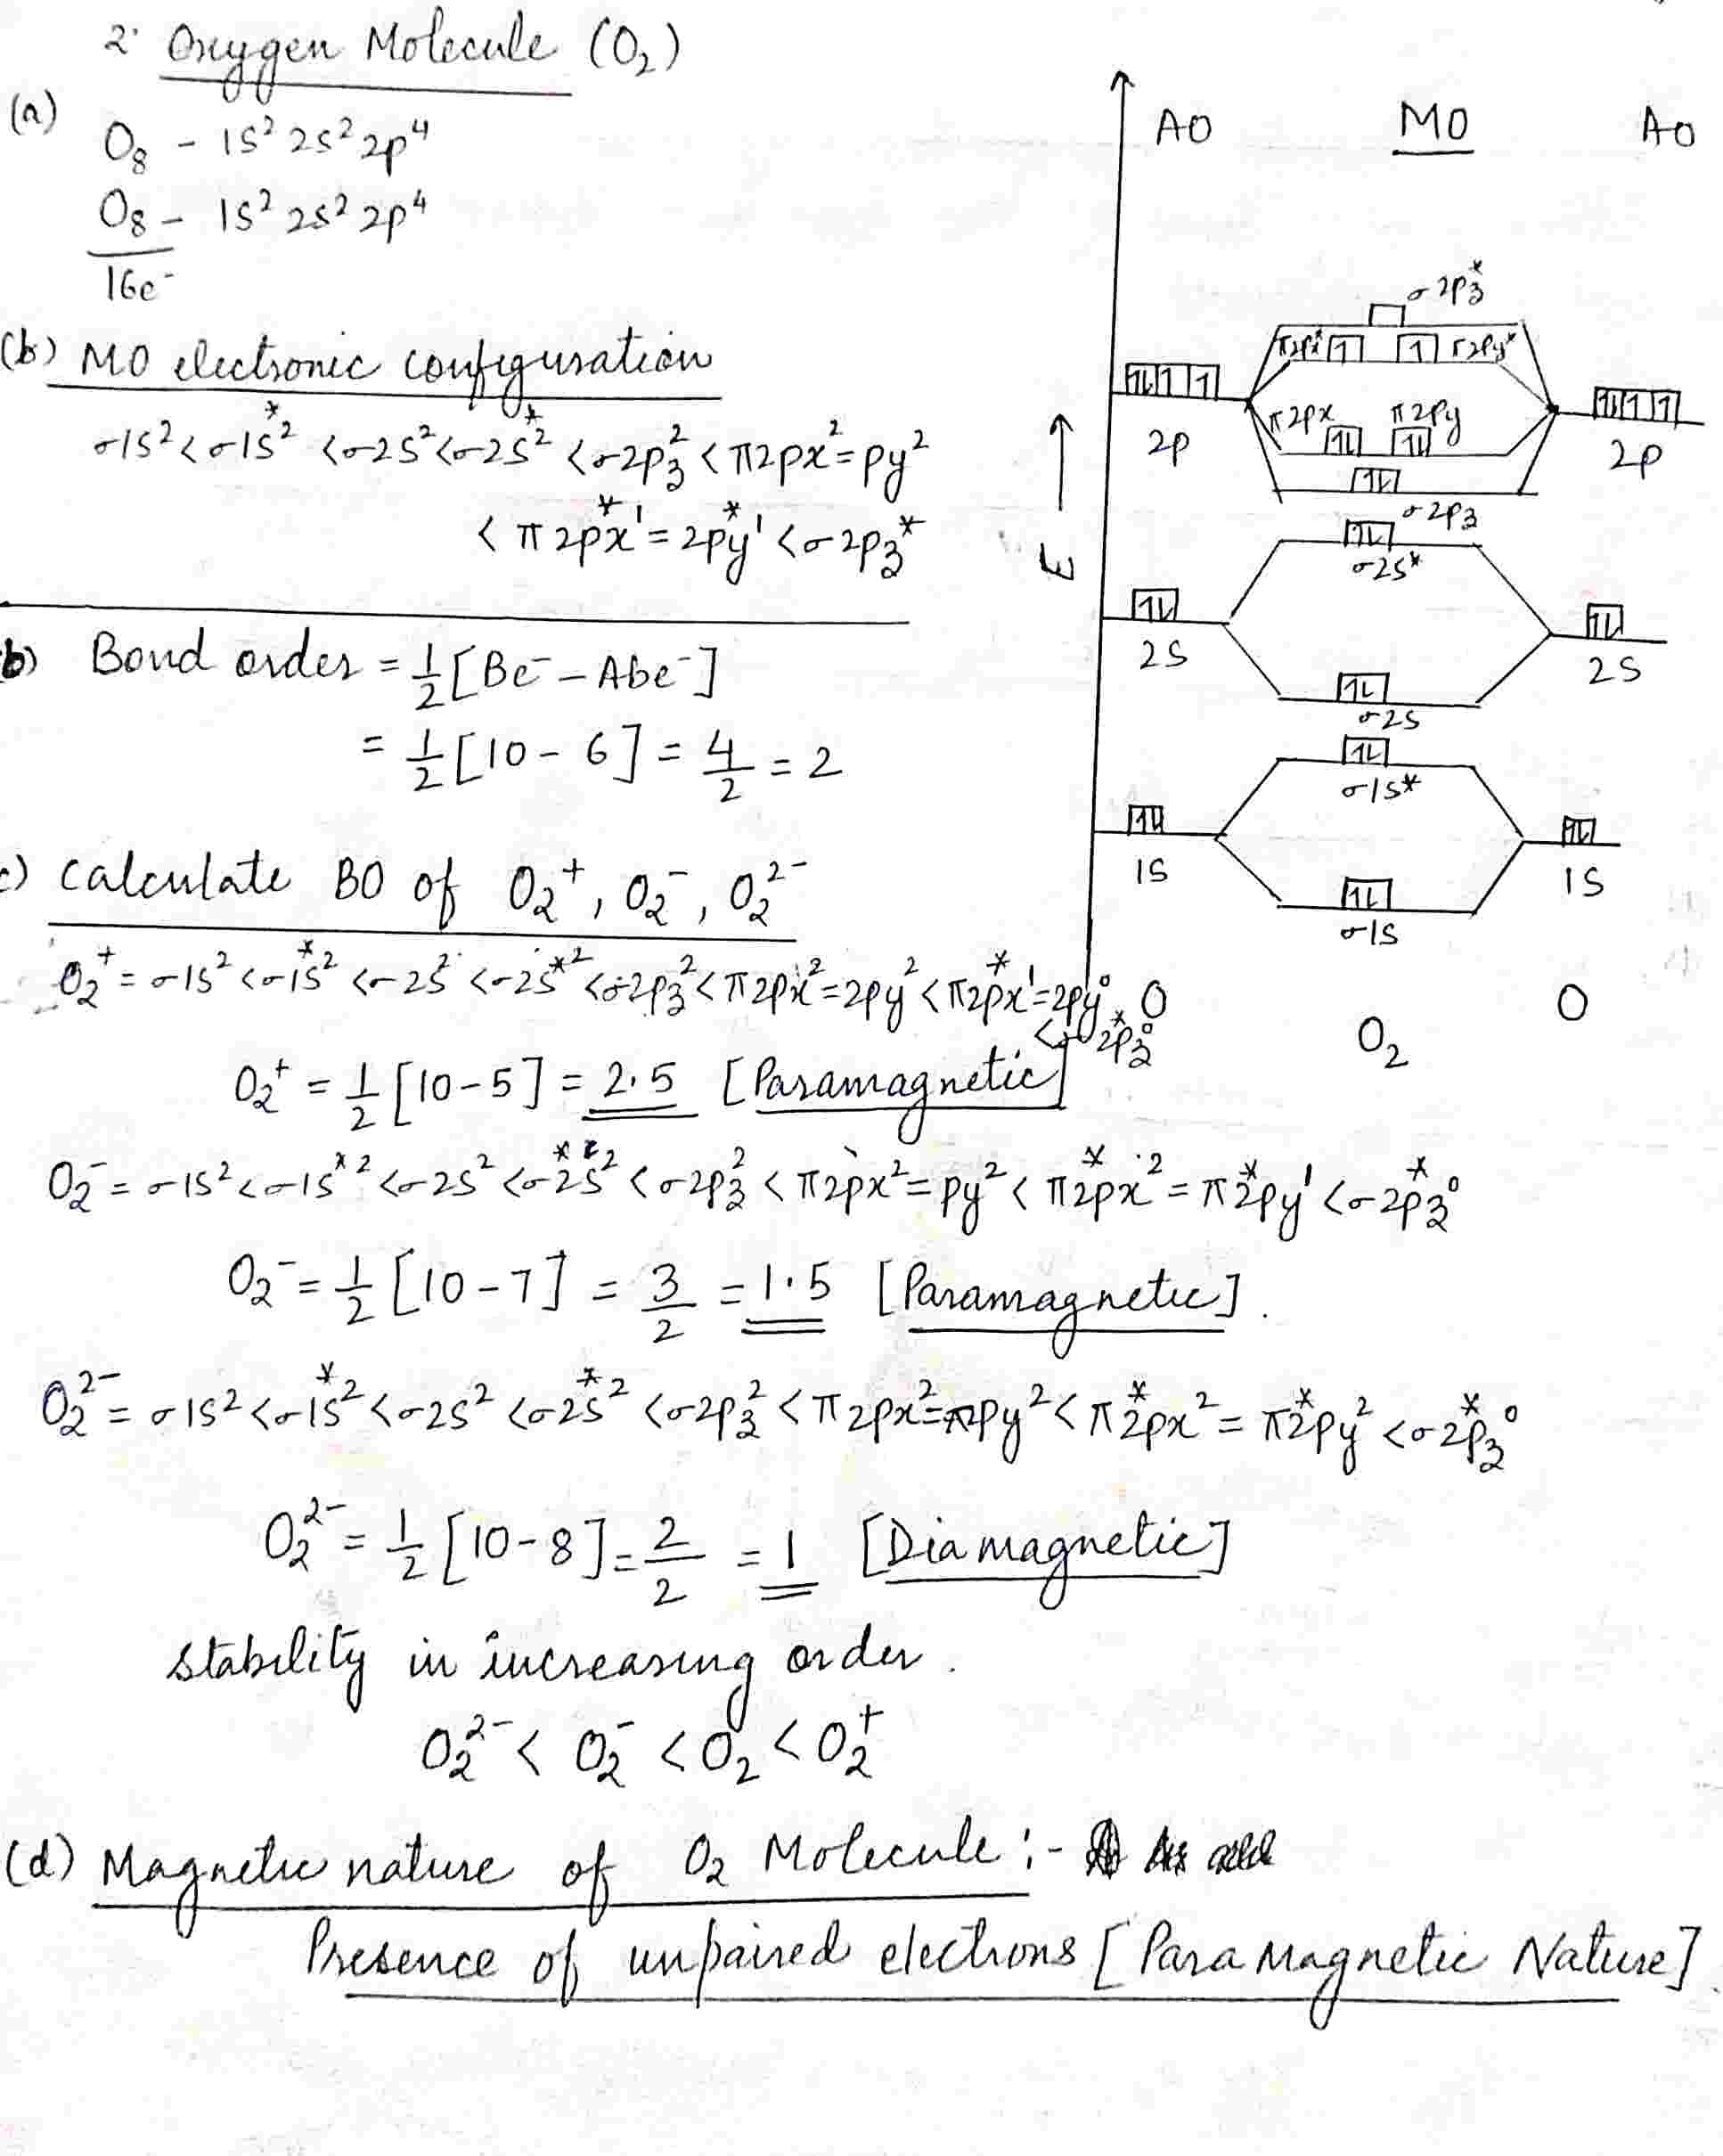 2. Oxygen Molecule (O₂)
(a)
O₈ - 1S² 2S² 2p⁴
O₈ - 1S² 2S² 2p⁴
16e⁻
(b) MO electronic configuration
σ1S² < σ1S*² < σ2S² < σ2S*² < σ2pz² < π2px² = py²
< π2px*¹ = 2py*¹ < σ2pz*
b) Bond order = 1/2 [Be⁻ - Abe⁻]
= 1/2 [10 - 6] = 4/2 = 2
c) Calculate BO of O₂⁺, O₂⁻, O₂²⁻
O₂⁺ = σ1S² < σ1S*² < σ2S² < σ2S*² < σ2pz² < π2px² = 2py² < π2px*¹ = 2py⁰
< σ2pz*⁰
O₂⁺ = 1/2 [10 - 5] = 2.5 [Paramagnetic]
O₂⁻ = σ1S² < σ1S*² < σ2S² < σ2S*² < σ2pz² < π2px² = py² < π*2px² = π*2py¹ < σ2pz*⁰
O₂⁻ = 1/2 [10 - 7] = 3/2 = 1.5 [Paramagnetic].
O₂²⁻ = σ1S² < σ1S*² < σ2S² < σ2S*² < σ2pz² < π2px² = π2py² < π*2px² = π*2py² < σ2pz*⁰
O₂²⁻ = 1/2 [10 - 8] = 2/2 = 1 [Diamagnetic]
stability in increasing order.
O₂²⁻ < O₂⁻ < O₂ < O₂⁺
(d) Magnetic nature of O₂ Molecule :-
Presence of unpaired electrons [Para Magnetic Nature].
AO MO AO
E
σ2pz*
π2px* π2py*
π2px π2py
2p 2p
σ2pz
σ2s*
2S 2S
σ2S
σ1s*
1S 1S
σ1S
O O₂ O